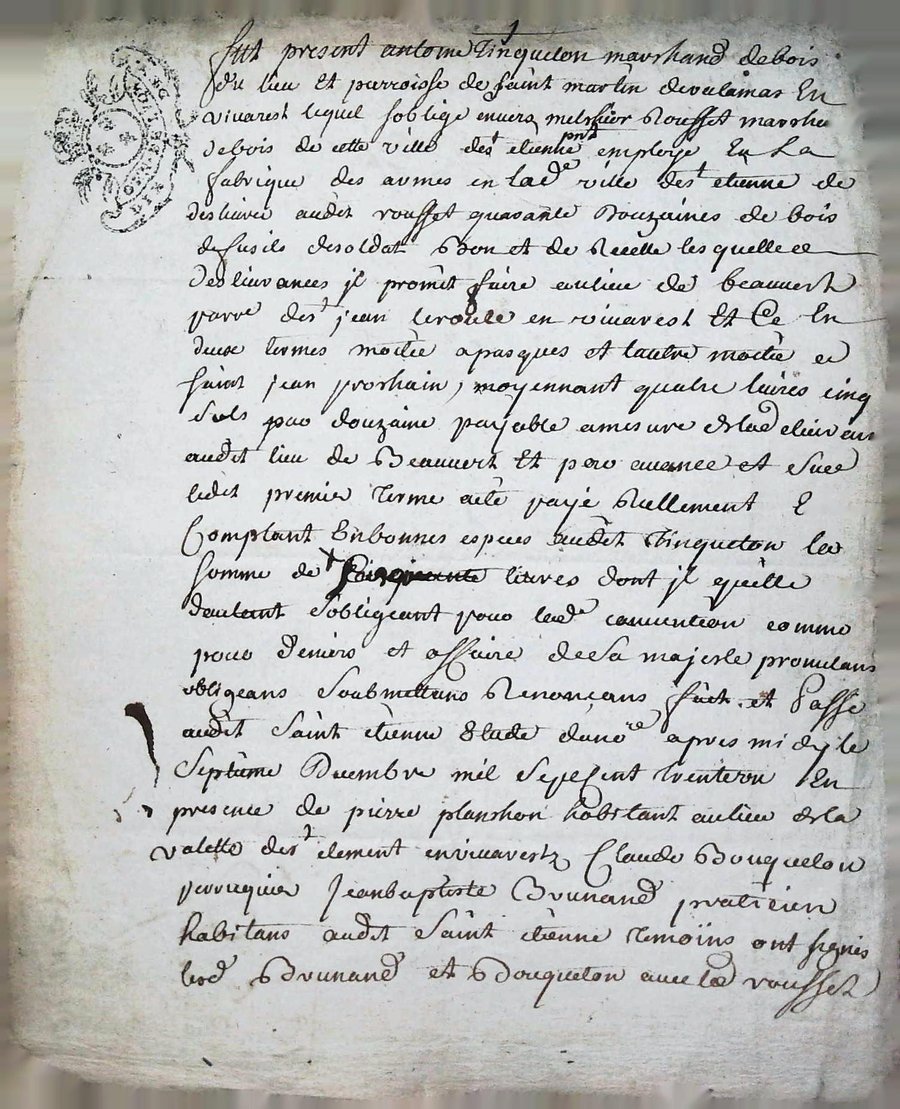 fut present antoine Tinquelon marchand de bois
du lieu et parroisse de saint martin de valamas En
vivarest lequel soblige envers melchior Rousset marcha
de bois de cette ville de st etienne pnt employe En La
fabrique des armes en lade ville de st etienne de
desliurer audit rousset quarante Douzaines de bois
de fusils de soldat Bon et de Recette lesquelles
desliurances jl promêt faire au lieu de beauvert
parre de st jean en vivarest Et Ce En
deux termes moitie a pasques et lautre moitie a
saint jean prochain, moyennant quatre liures cinq
sols par douzaine payable a mesure de lad
audit lieu de Beauvert Et par avance et sur
ledit premier Terme a ete payé Reellement E
Comptant En bonnes especes audit Tinquelon la
somme de livres dont jl quitte
dautant sobligeant pour lade convention comme
pour deniers et affaire de sa majeste promettans
obligeans Soubmettans Renonçans fait et Passé
audit Saint etienne Etude du nore apres midy le
Septieme Decembre mil sept Cent trente En
presence de pierre planchon habitant au lieu de la
valette de st clement en vivarestz Claude Bouquelon
perruquier Jean baptiste Brunand praticien
habitans audit Saint etienne Temoins ont signés
lesd Brunand et Bouquelon avec led rousset